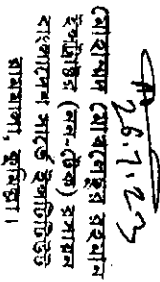 26.7.23
মোহাম্মদ মোখলেছুর রহমান
ইন্সট্রাক্টর (নন-টেক) রসায়ন
বাংলাদেশ সার্ভে ইনস্টিটিউট
রামমালা, কুমিল্লা।